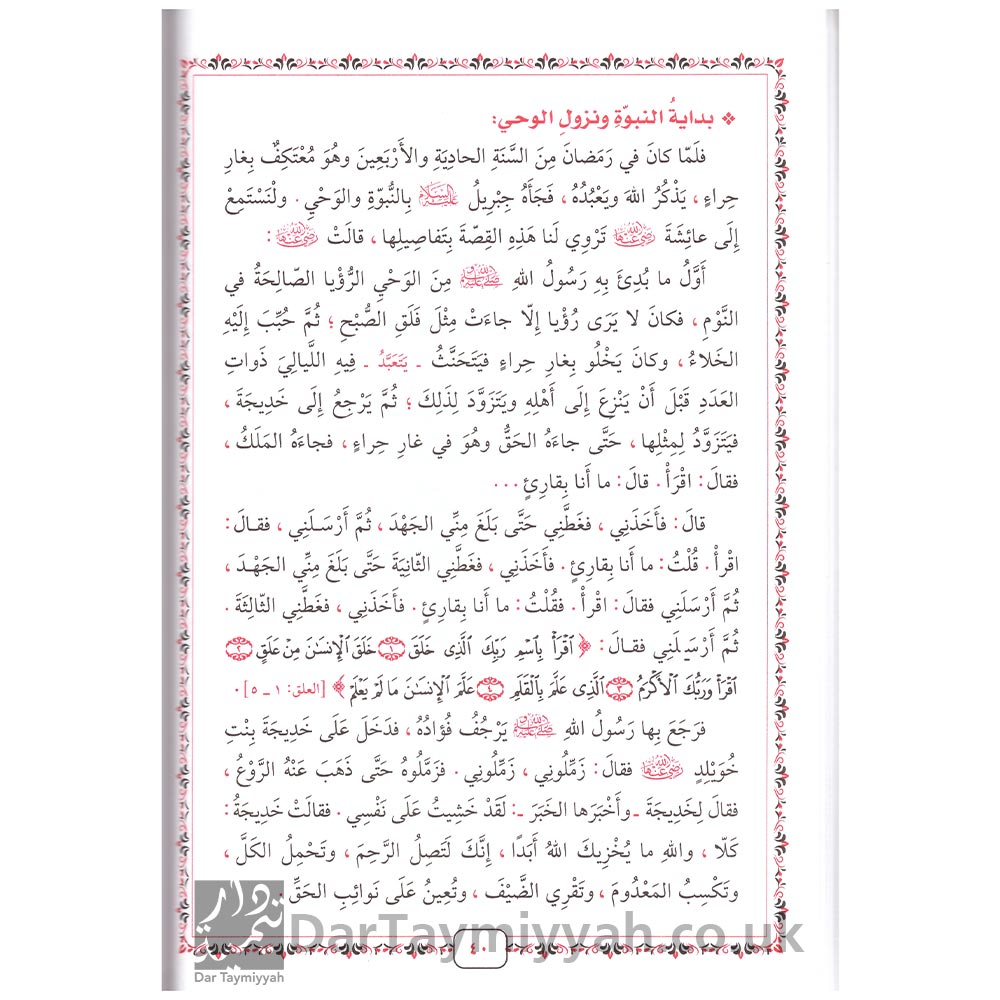 ❖ بدايةُ النبوّةِ ونزولِ الوحي:
فلَمّا كانَ في رَمَضانَ مِنَ السَّنَةِ الحادِيَةِ والأَرْبَعِينَ وهُوَ مُعْتَكِفٌ بِغارِ
حِراءٍ، يَذْكُرُ اللهَ ويَعْبُدُهُ، فَجَأَهُ جِبْرِيلُ عليه السلام بِالنُّبوّةِ والوَحْيِ. ولْنَسْتَمِعْ
إِلَى عائِشَةَ رضي الله عنها تَرْوِي لَنا هَذِهِ القِصّةَ بِتَفاصِيلِها، قالَتْ رضي الله عنها:
أَوَّلُ ما بُدِئَ بِهِ رَسُولُ اللهِ ﷺ مِنَ الوَحْيِ الرُّؤيا الصّالِحَةُ في
النَّوْمِ، فكانَ لا يَرَى رُؤْيا إِلّا جاءَتْ مِثْلَ فَلَقِ الصُّبْحِ؛ ثُمَّ حُبِّبَ إِلَيْهِ
الخَلاءُ، وكانَ يَخْلُو بِغارِ حِراءٍ فيَتَحَنَّثُ ـ يَتَعَبَّدُ ـ فِيهِ اللَّيالِيَ ذَواتِ
العَدَدِ قَبْلَ أَنْ يَنْزِعَ إِلَى أَهْلِهِ ويَتَزَوَّدَ لِذَلِكَ؛ ثُمَّ يَرْجِعُ إِلَى خَدِيجَةَ،
فيَتَزَوَّدُ لِمِثْلِها، حَتَّى جاءَهُ الحَقُّ وهُوَ في غارِ حِراءٍ، فجاءَهُ المَلَكُ،
فقالَ: اقْرَأْ. قالَ: ما أَنا بِقارِئٍ...
قالَ: فأَخَذَنِي، فغَطَّنِي حَتَّى بَلَغَ مِنِّي الجَهْدَ، ثُمَّ أَرْسَلَنِي، فقالَ:
اقْرأْ. قُلْتُ: ما أَنا بِقارِئٍ. فأَخَذَنِي، فغَطَّنِي الثّانِيَةَ حَتَّى بَلَغَ مِنِّي الجَهْدَ،
ثُمَّ أَرْسَلَنِي فقالَ: اقْرأْ. فقُلْتُ: ما أَنا بِقارِئٍ. فأَخَذَنِي، فغَطَّنِي الثّالِثَةَ.
ثُمَّ أَرْسَلَنِي فقالَ: ﴿اقْرَأْ بِاسْمِ رَبِّكَ الَّذِي خَلَقَ ﴿١﴾ خَلَقَ الْإِنسَانَ مِنْ عَلَقٍ ﴿٢﴾
اقْرَأْ وَرَبُّكَ الْأَكْرَمُ ﴿٣﴾ الَّذِي عَلَّمَ بِالْقَلَمِ ﴿٤﴾ عَلَّمَ الْإِنسَانَ مَا لَمْ يَعْلَمْ﴾ [العلق: ١ ـ ٥].
فرَجَعَ بِها رَسُولُ اللهِ ﷺ يَرْجُفُ فُؤادُهُ، فدَخَلَ عَلَى خَدِيجَةَ بِنْتِ
خُوَيْلِدٍ رضي الله عنها فقالَ: زَمِّلُونِي، زَمِّلُونِي. فزَمَّلُوهُ حَتَّى ذَهَبَ عَنْهُ الرَّوْعُ،
فقالَ لِخَدِيجَةَ ـ وأَخْبَرَها الخَبَرَ ـ: لَقَدْ خَشِيتُ عَلَى نَفْسِي. فقالَتْ خَدِيجَةُ:
كَلّا، واللهِ ما يُخْزِيكَ اللهُ أَبَدًا، إِنَّكَ لَتَصِلُ الرَّحِمَ، وتَحْمِلُ الكَلَّ،
وتَكْسِبُ المَعْدُومَ، وتَقْرِي الضَّيْفَ، وتُعِينُ عَلَى نَوائِبِ الحَقِّ.
٤٠
DarTaymiyyah.co.uk
دار تيمية
Dar Taymiyyah